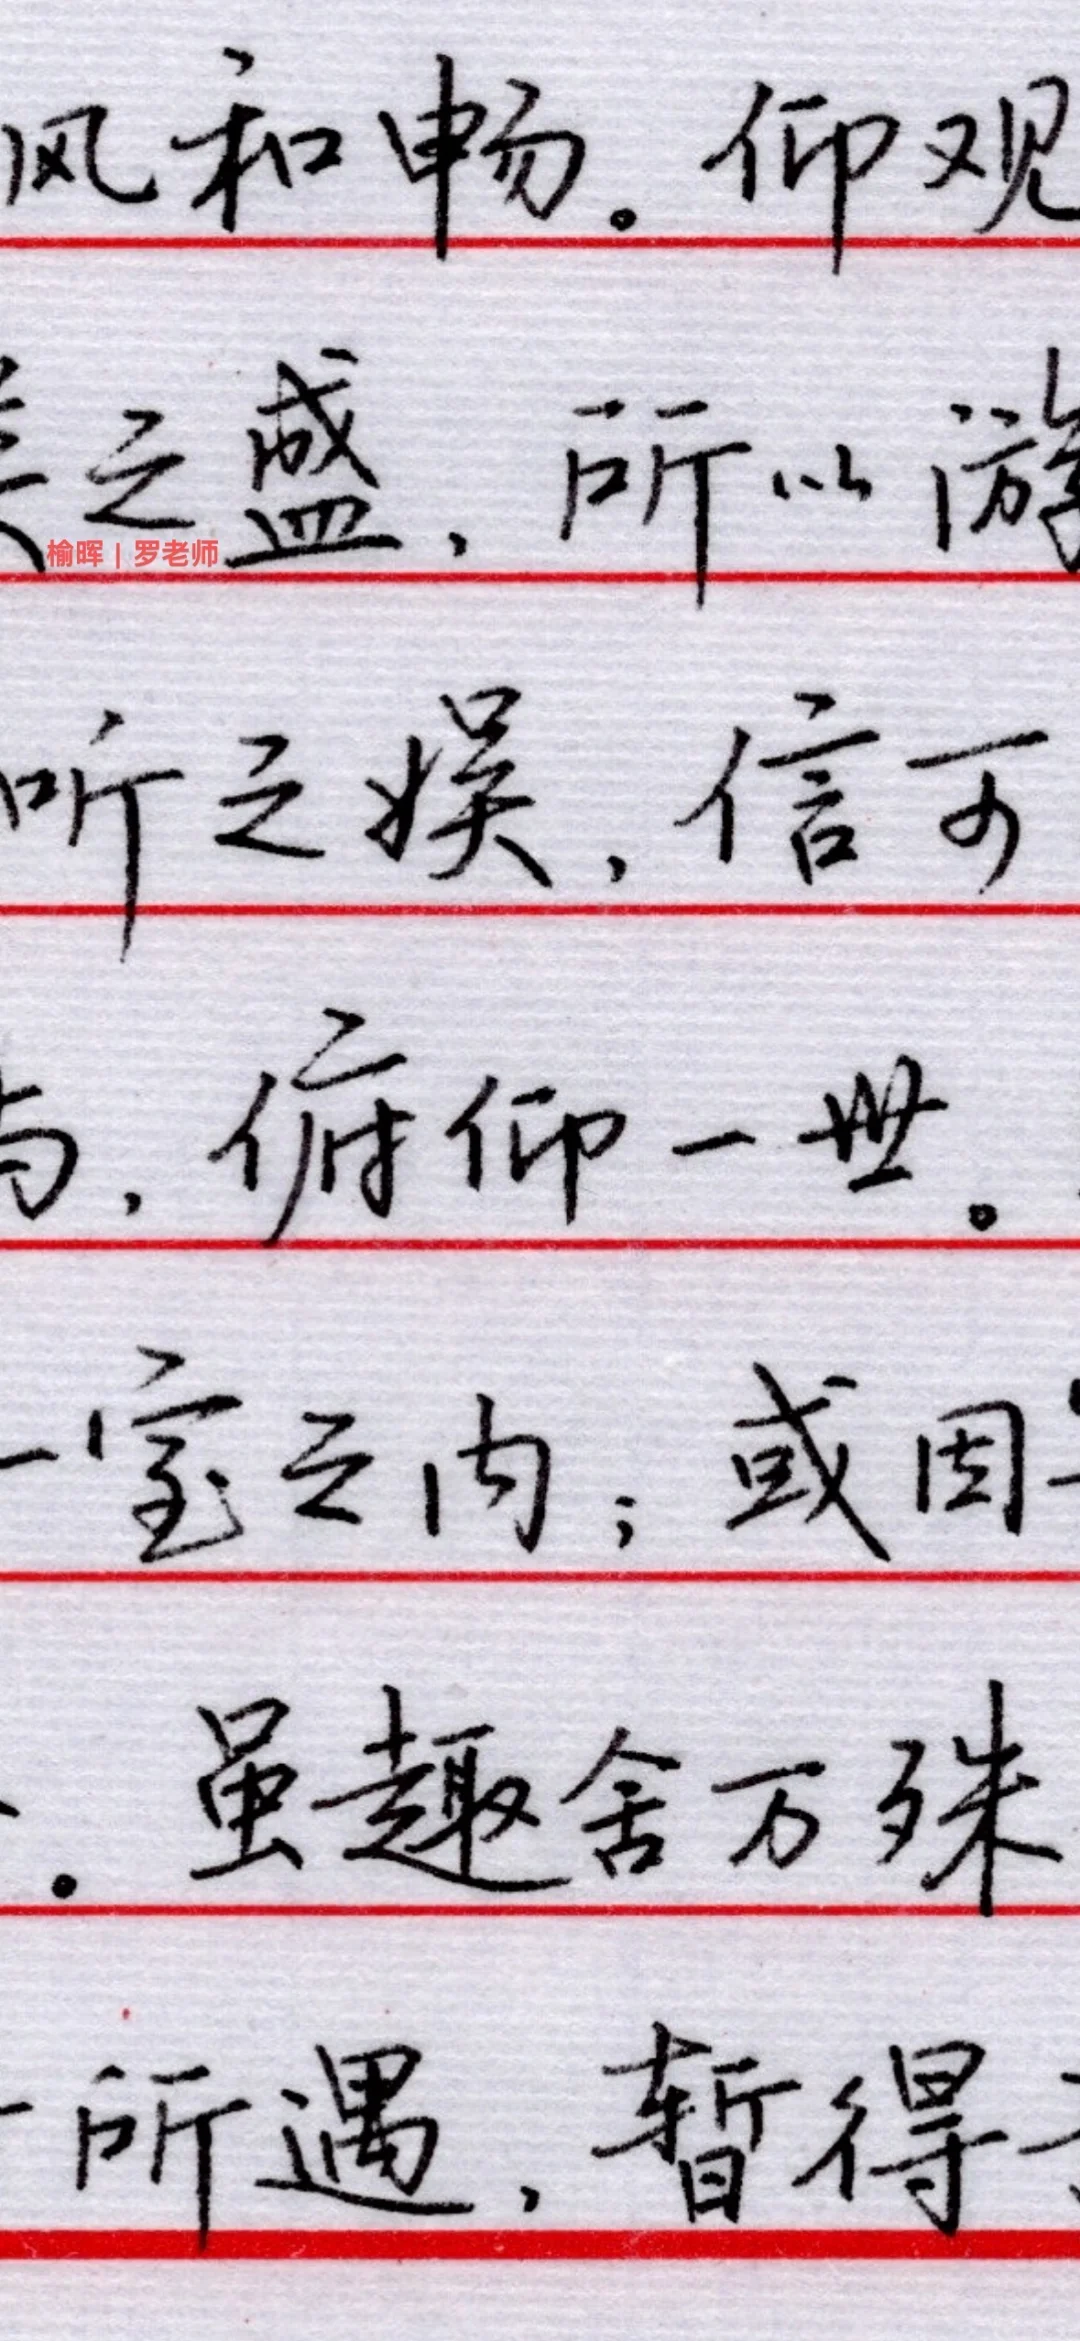 风和畅。仰观
类之盛，所以游
榆晖 | 罗老师
听之娱，信可
与，俯仰一世。
一室之内；或因
。虽趣舍万殊
所遇，暂得